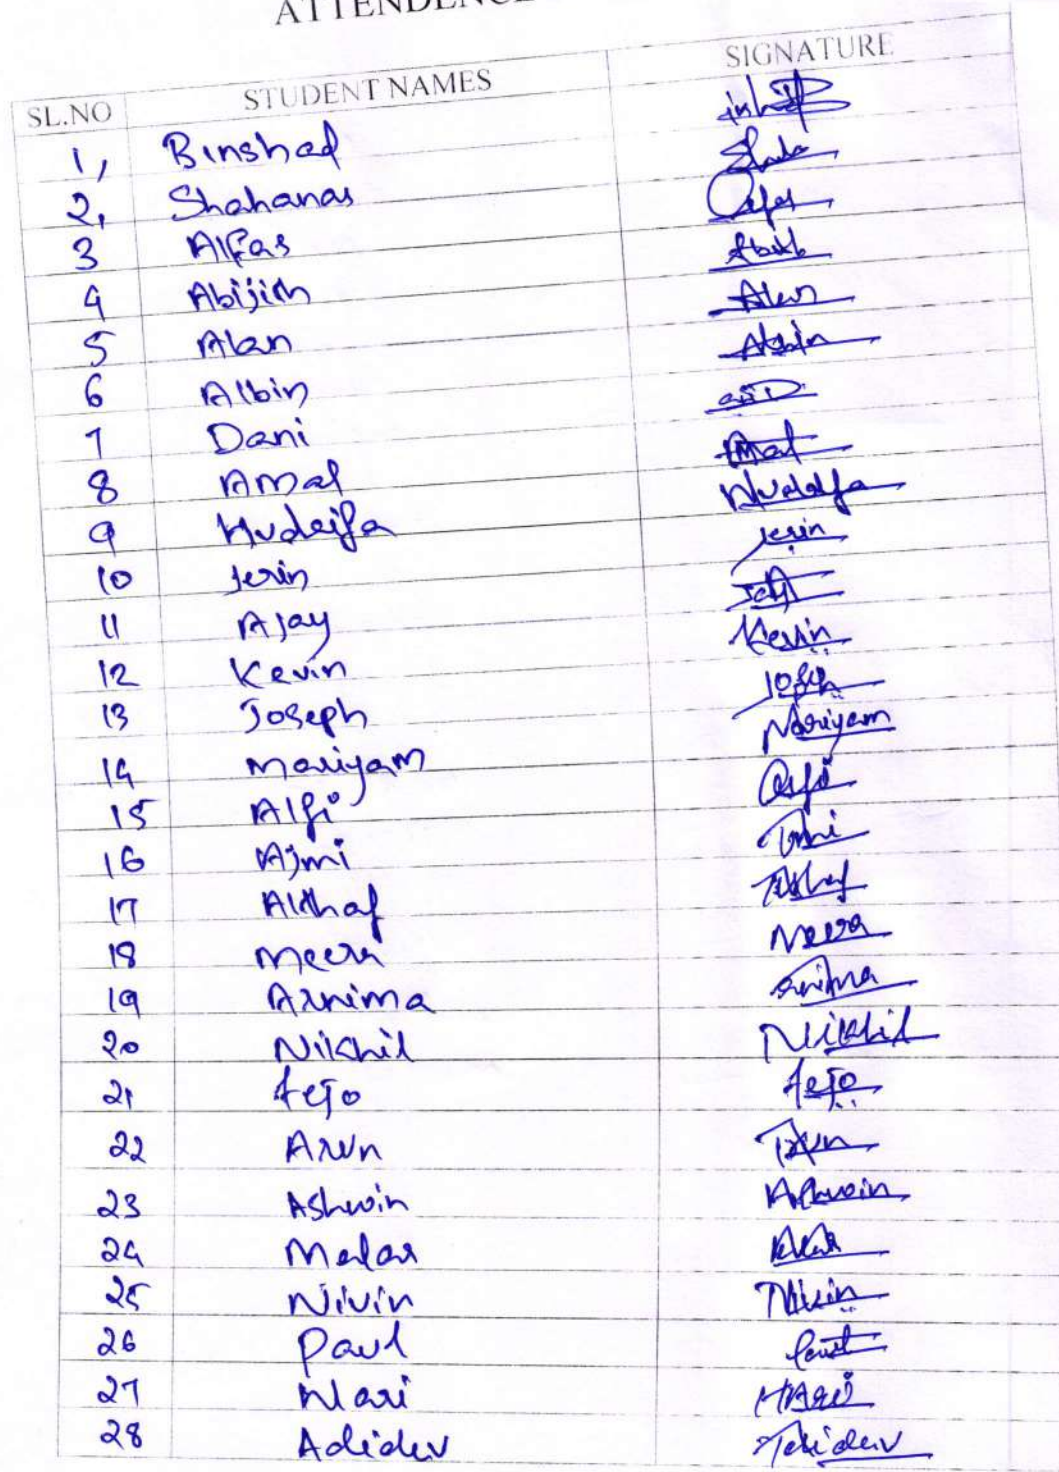 ATTENDENCE
SL.NO STUDENT NAMES SIGNATURE
1, Binshad
2, Shahanas
3 Alfas
4 Abijith
5 Alan Alan
6 Albin Albin
7 Dani
8 Amal Amal
9 Hudaifa Hudaifa
10 Jerin Jerin
11 Ajay
12 Kevin Kevin
13 Joseph
14 Mariyam Mariyam
15 Alfi
16 Ajmi
17 Althaf Althaf
18 Meera Meera
19 Arnima
20 Nikhil Nikhil
21 Jejo Jejo
22 Arun Arun
23 Ashwin Ashwin
24 Malar
25 Nivin Nivin
26 Paul Paul
27 Hari HAri
28 Adidev Adidev